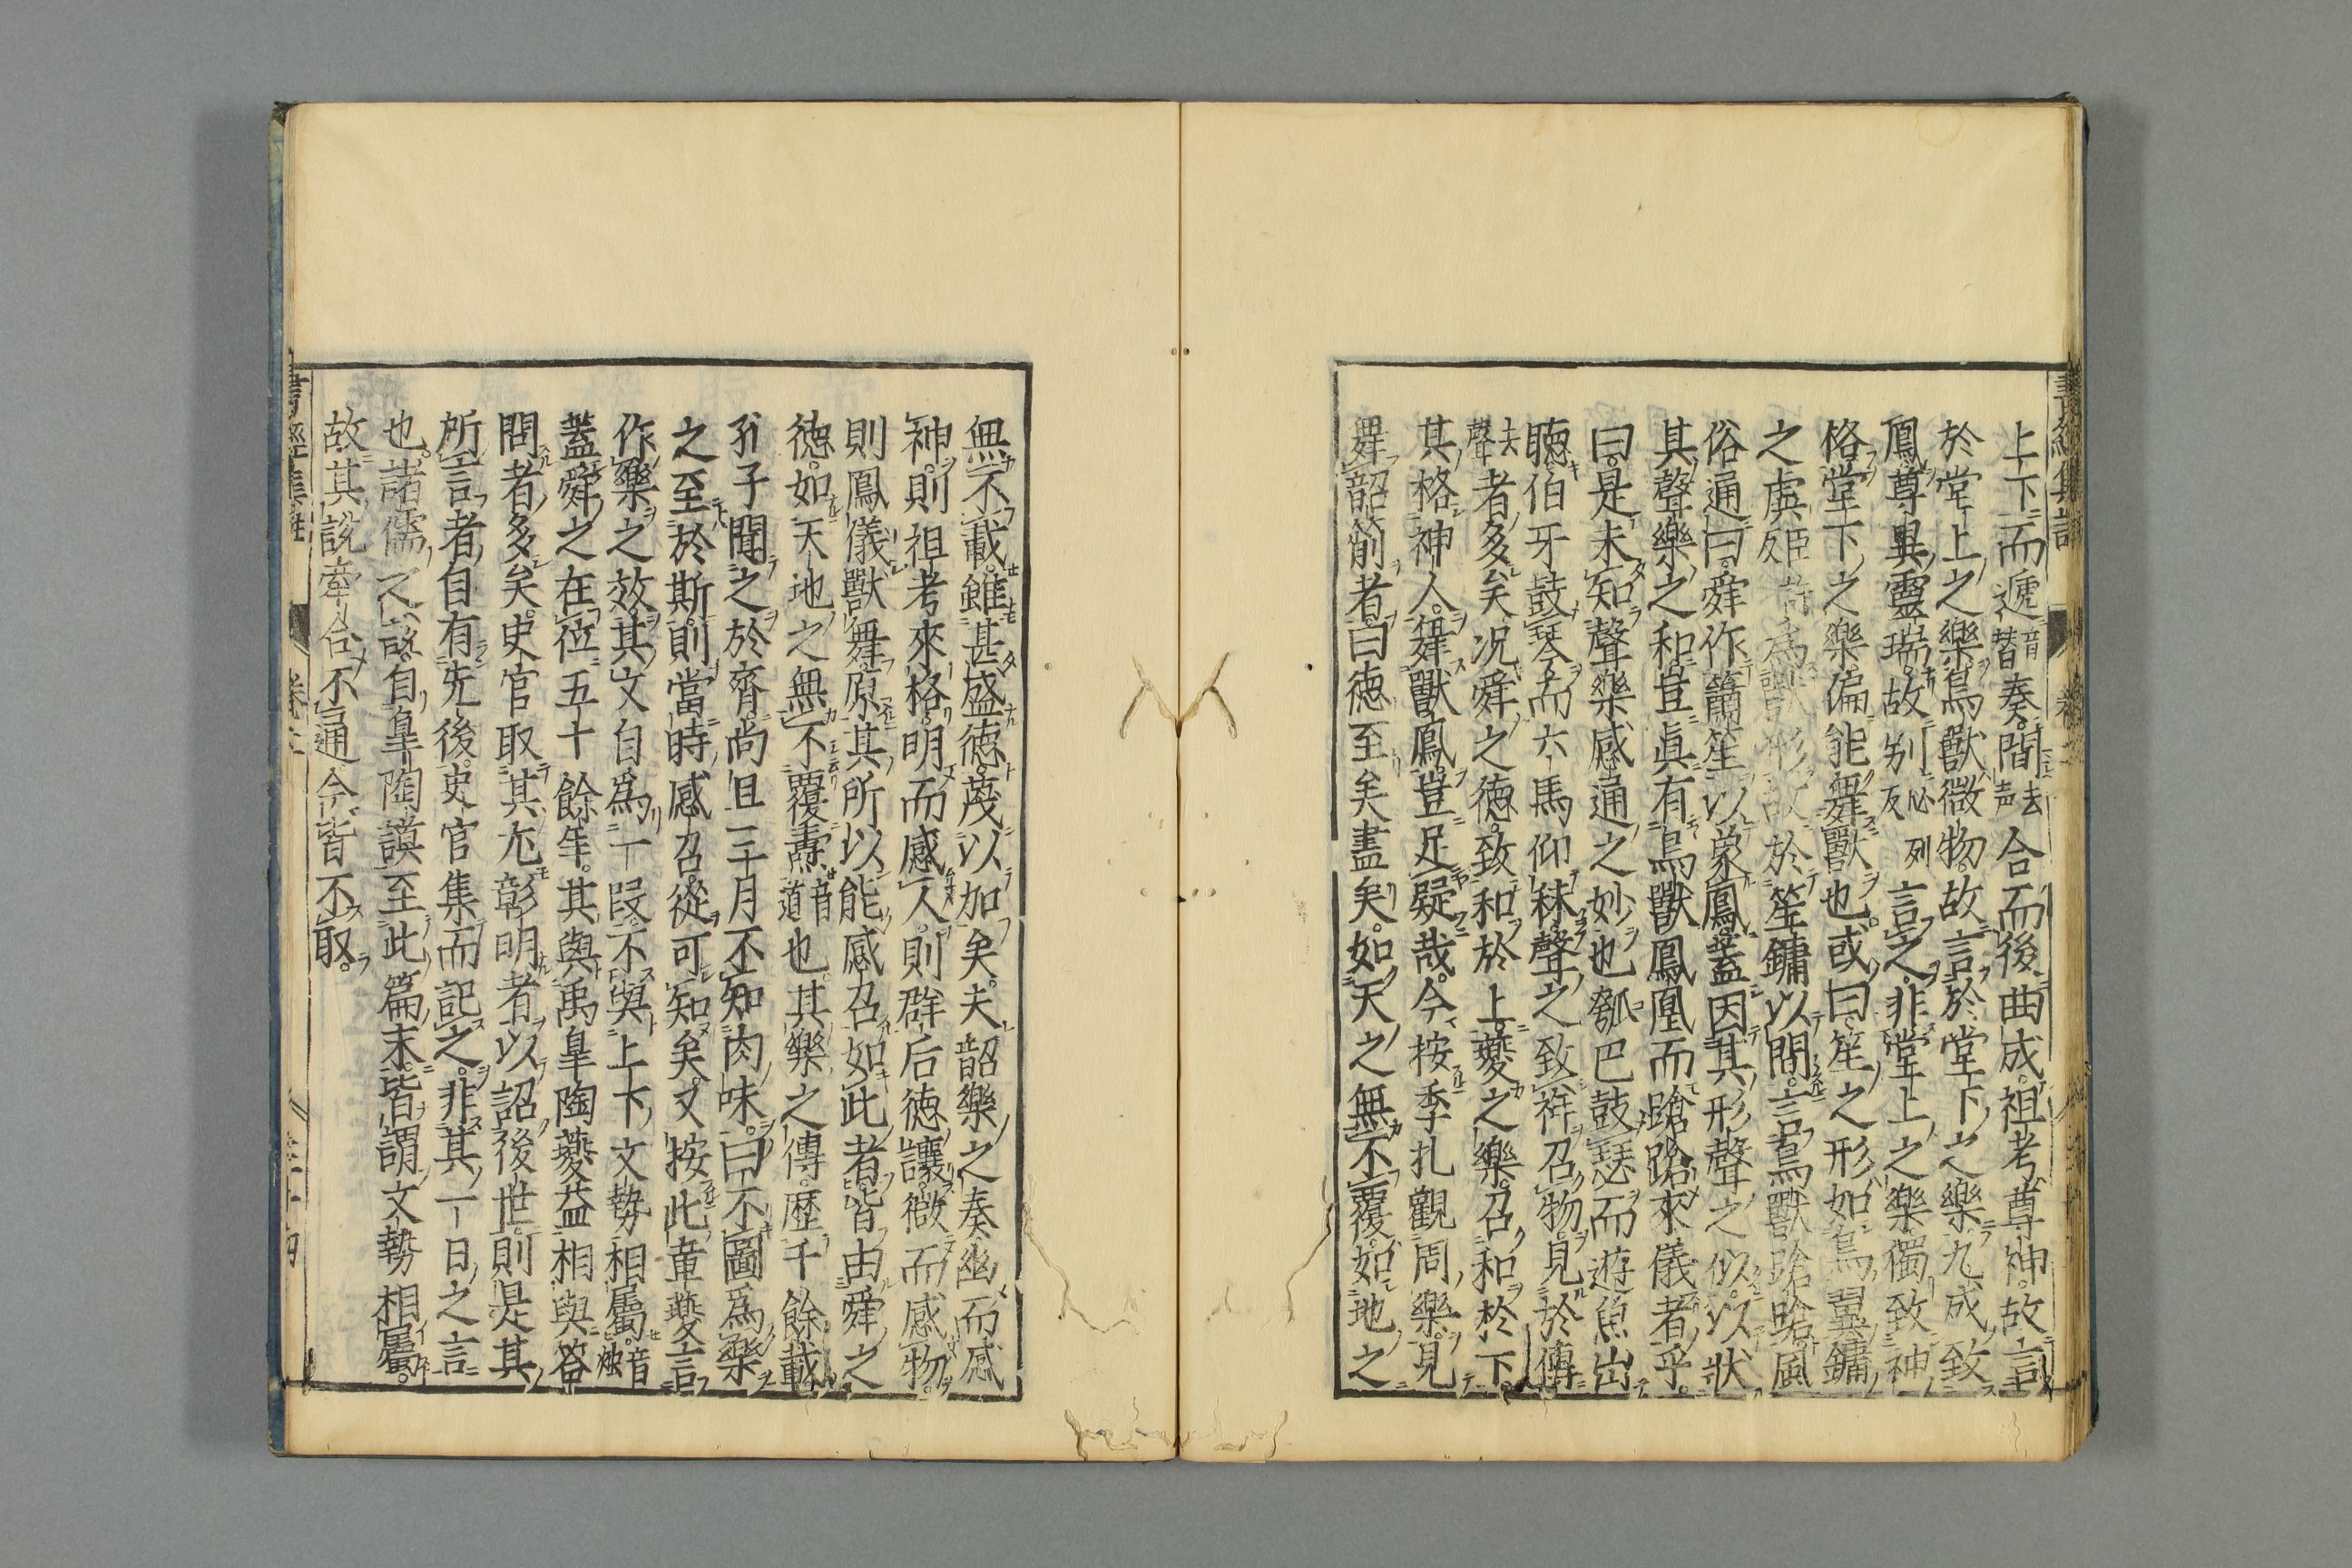 書經集註 卷
上下而遞音替奏間去声合而後曲成祖考尊神故言
於堂上之樂鳥獸微物故言於堂下之樂九成致
鳳尊異靈瑞故別必列反言之非堂上之樂獨致神
格堂下之樂偏能舞獸也或曰笙之形如鳥翼鏞
之虡臣姬反 為獸形故於笙鏞以間言鳥獸蹌蹌風
俗通曰舜作簫笙以象鳳蓋因其形聲之似以狀
其聲樂之和豈眞有鳥獸鳳凰而蹌蹌來儀者乎
曰是未知聲樂感通之妙也瓠巴鼓瑟而遊魚出
聴伯牙鼓琴而六馬仰秣聲之致祥召物見於傳
去聲者多矣况舜之德致和於上夔之樂召和於下
其格神人舞獸鳳豈足疑哉今按季扎觀周樂見
舞韶箾者曰徳至矣盡矣如天之無不覆如地之
無不載雖甚盛徳蔑以加矣夫韶樂之奏幽而感
神則祖考來格明而感人則群后德讓微而感物
則鳳儀獸舞原其所以能感召如此者皆由舜之
徳如天地之無不覆燾音道也其樂之傳歷千餘載
孔子聞之於齊尚且三月不知肉味曰不圖爲樂
之至於斯則當時感召從可知矣又按此章夔言
作樂之效其文自爲一段不與上下文勢相屬音燭
蓋舜之在位五十餘年其與禹皐陶夔益相與答
問者多矣史官取其尤彰明者以詔後世則是其
所言者自有先後史官集而記之非其一日之言
也諸儒之說自皐陶謨至此篇末皆謂文勢相屬
故其說牽合不通今皆不取
書經集註 卷二 三十四